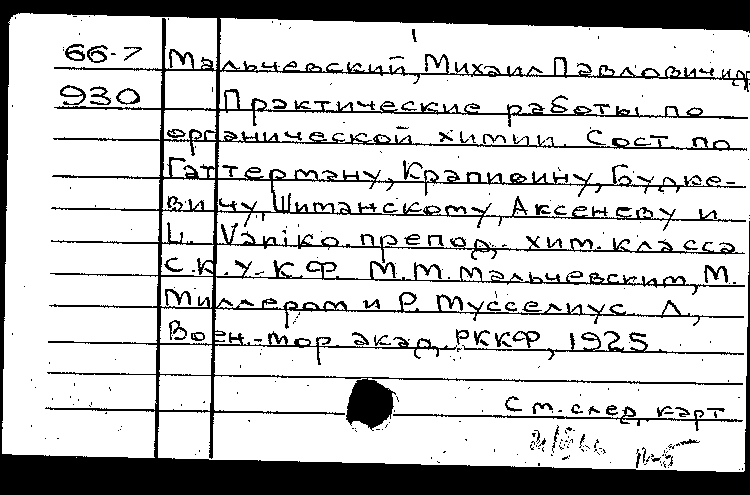 66-7 Мальчевский, Михаил Павлович и др
930 Практические работы по
органической химии. Сост. по
Гаттерману, Крапивину, Будке-
вичу, Шиманскому, Аксеневу и
L. Vaniko. препод. хим. класса
С.К.У.К.Ф. М.М. Мальчевским, М.
Миллером и Р. Мусселиус. Л.,
Воен.-мор. акад. РККФ, 1925.
См. след. карт